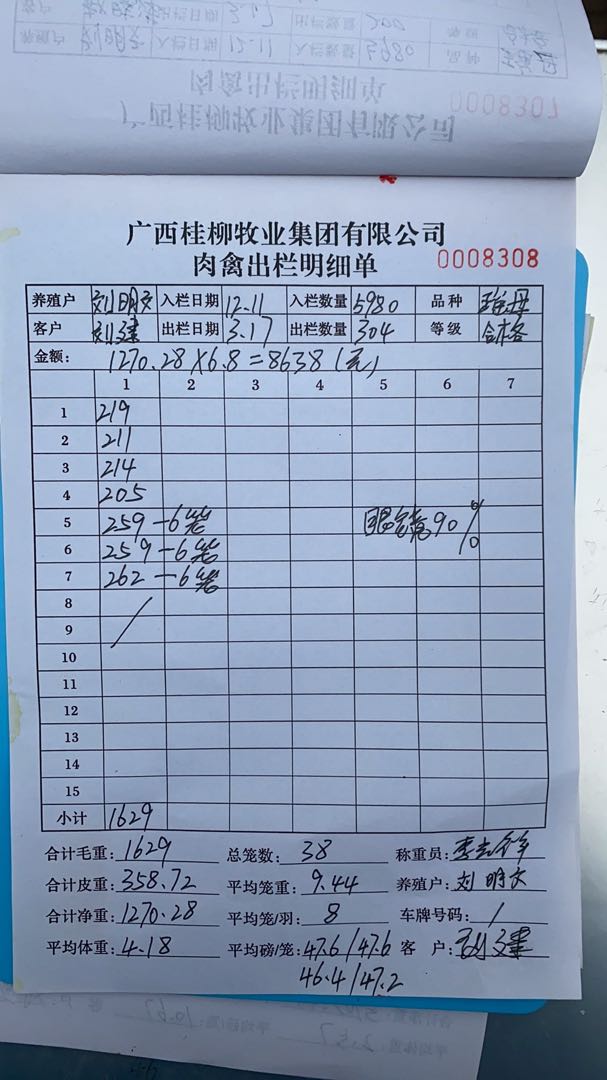 0008307
广西桂柳牧业集团有限公司
肉禽出栏明细单
0008308
养殖户 刘明文 入栏日期 12.11 入栏数量 5980 品种
客户 刘建 出栏日期 3.17 出栏数量 304 等级 合格
金额: 1270.28×6.8=8638(元)
1 2 3 4 5 6 7
1 219
2 211
3 214
4 205
5 259-6笼 眼镜90%
6 259-6笼
7 262-6笼
8
9
10
11
12
13
14
15
小计 1629
合计毛重: 1629 总笼数: 38 称重员:
合计皮重: 358.72 平均笼重: 9.44 养殖户: 刘明文
合计净重: 1270.28 平均笼/羽: 8 车牌号码: /
平均体重: 4.18 平均磅/笼: 47.6/47.6 客 户: 刘建
46.4/47.2